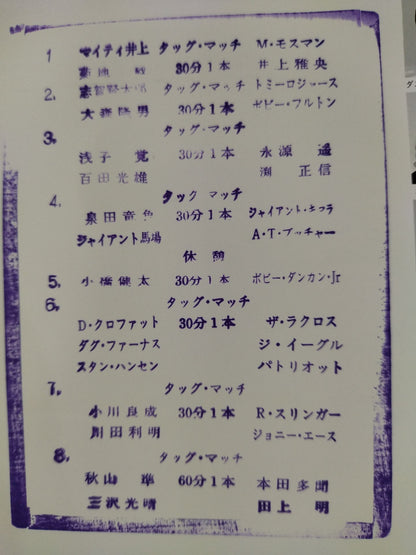 1 マイティ井上 タッグ・マッチ M・モスマン
菊地 毅 30分1本 井上雅央
2. 志賀賢太郎 タッグ・マッチ トミーロジャース
大森隆男 30分1本 ボビー・フルトン
3. タッグ・マッチ
浅子 覚 30分1本 永源 遙
百田光雄 渕 正信
4. タッグ マッチ
泉田竜角 30分1本 ジャイアント・キマラ
ジャイアント馬場 A・T・ブッチャー
休憩
5. 小橋健太 30分1本 ボビー・ダンカン・Jr
6. タッグ・マッチ
D・クロファット 30分1本 ザ・ラクロス
ダグ・ファーナス ジ・イーグル
スタン・ハンセン パトリオット
7. タッグ・マッチ
小川良成 30分1本 R・スリンガー
川田利明 ジョニー・エース
8. タッグ・マッチ
秋山 準 60分1本 本田多聞
三沢光晴 田上 明